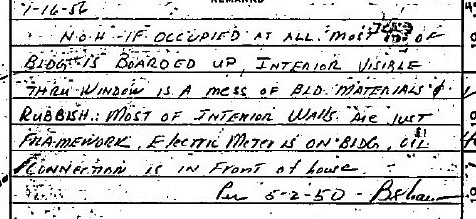 REMARKS
1-16-56
N.O.H - IF OCCUPIED AT ALL. MOST OF
BLDG IS BOARDED UP, INTERIOR VISIBLE
THRU WINDOW IS A MESS OF BLD. MATERIALS &
RUBBISH. MOST OF INTERIOR WALLS ARE JUST
FRAMEWORK, Electric Meter is on BLDG, OIL
CONNECTION is in Front of house
Per 5-2-50 -